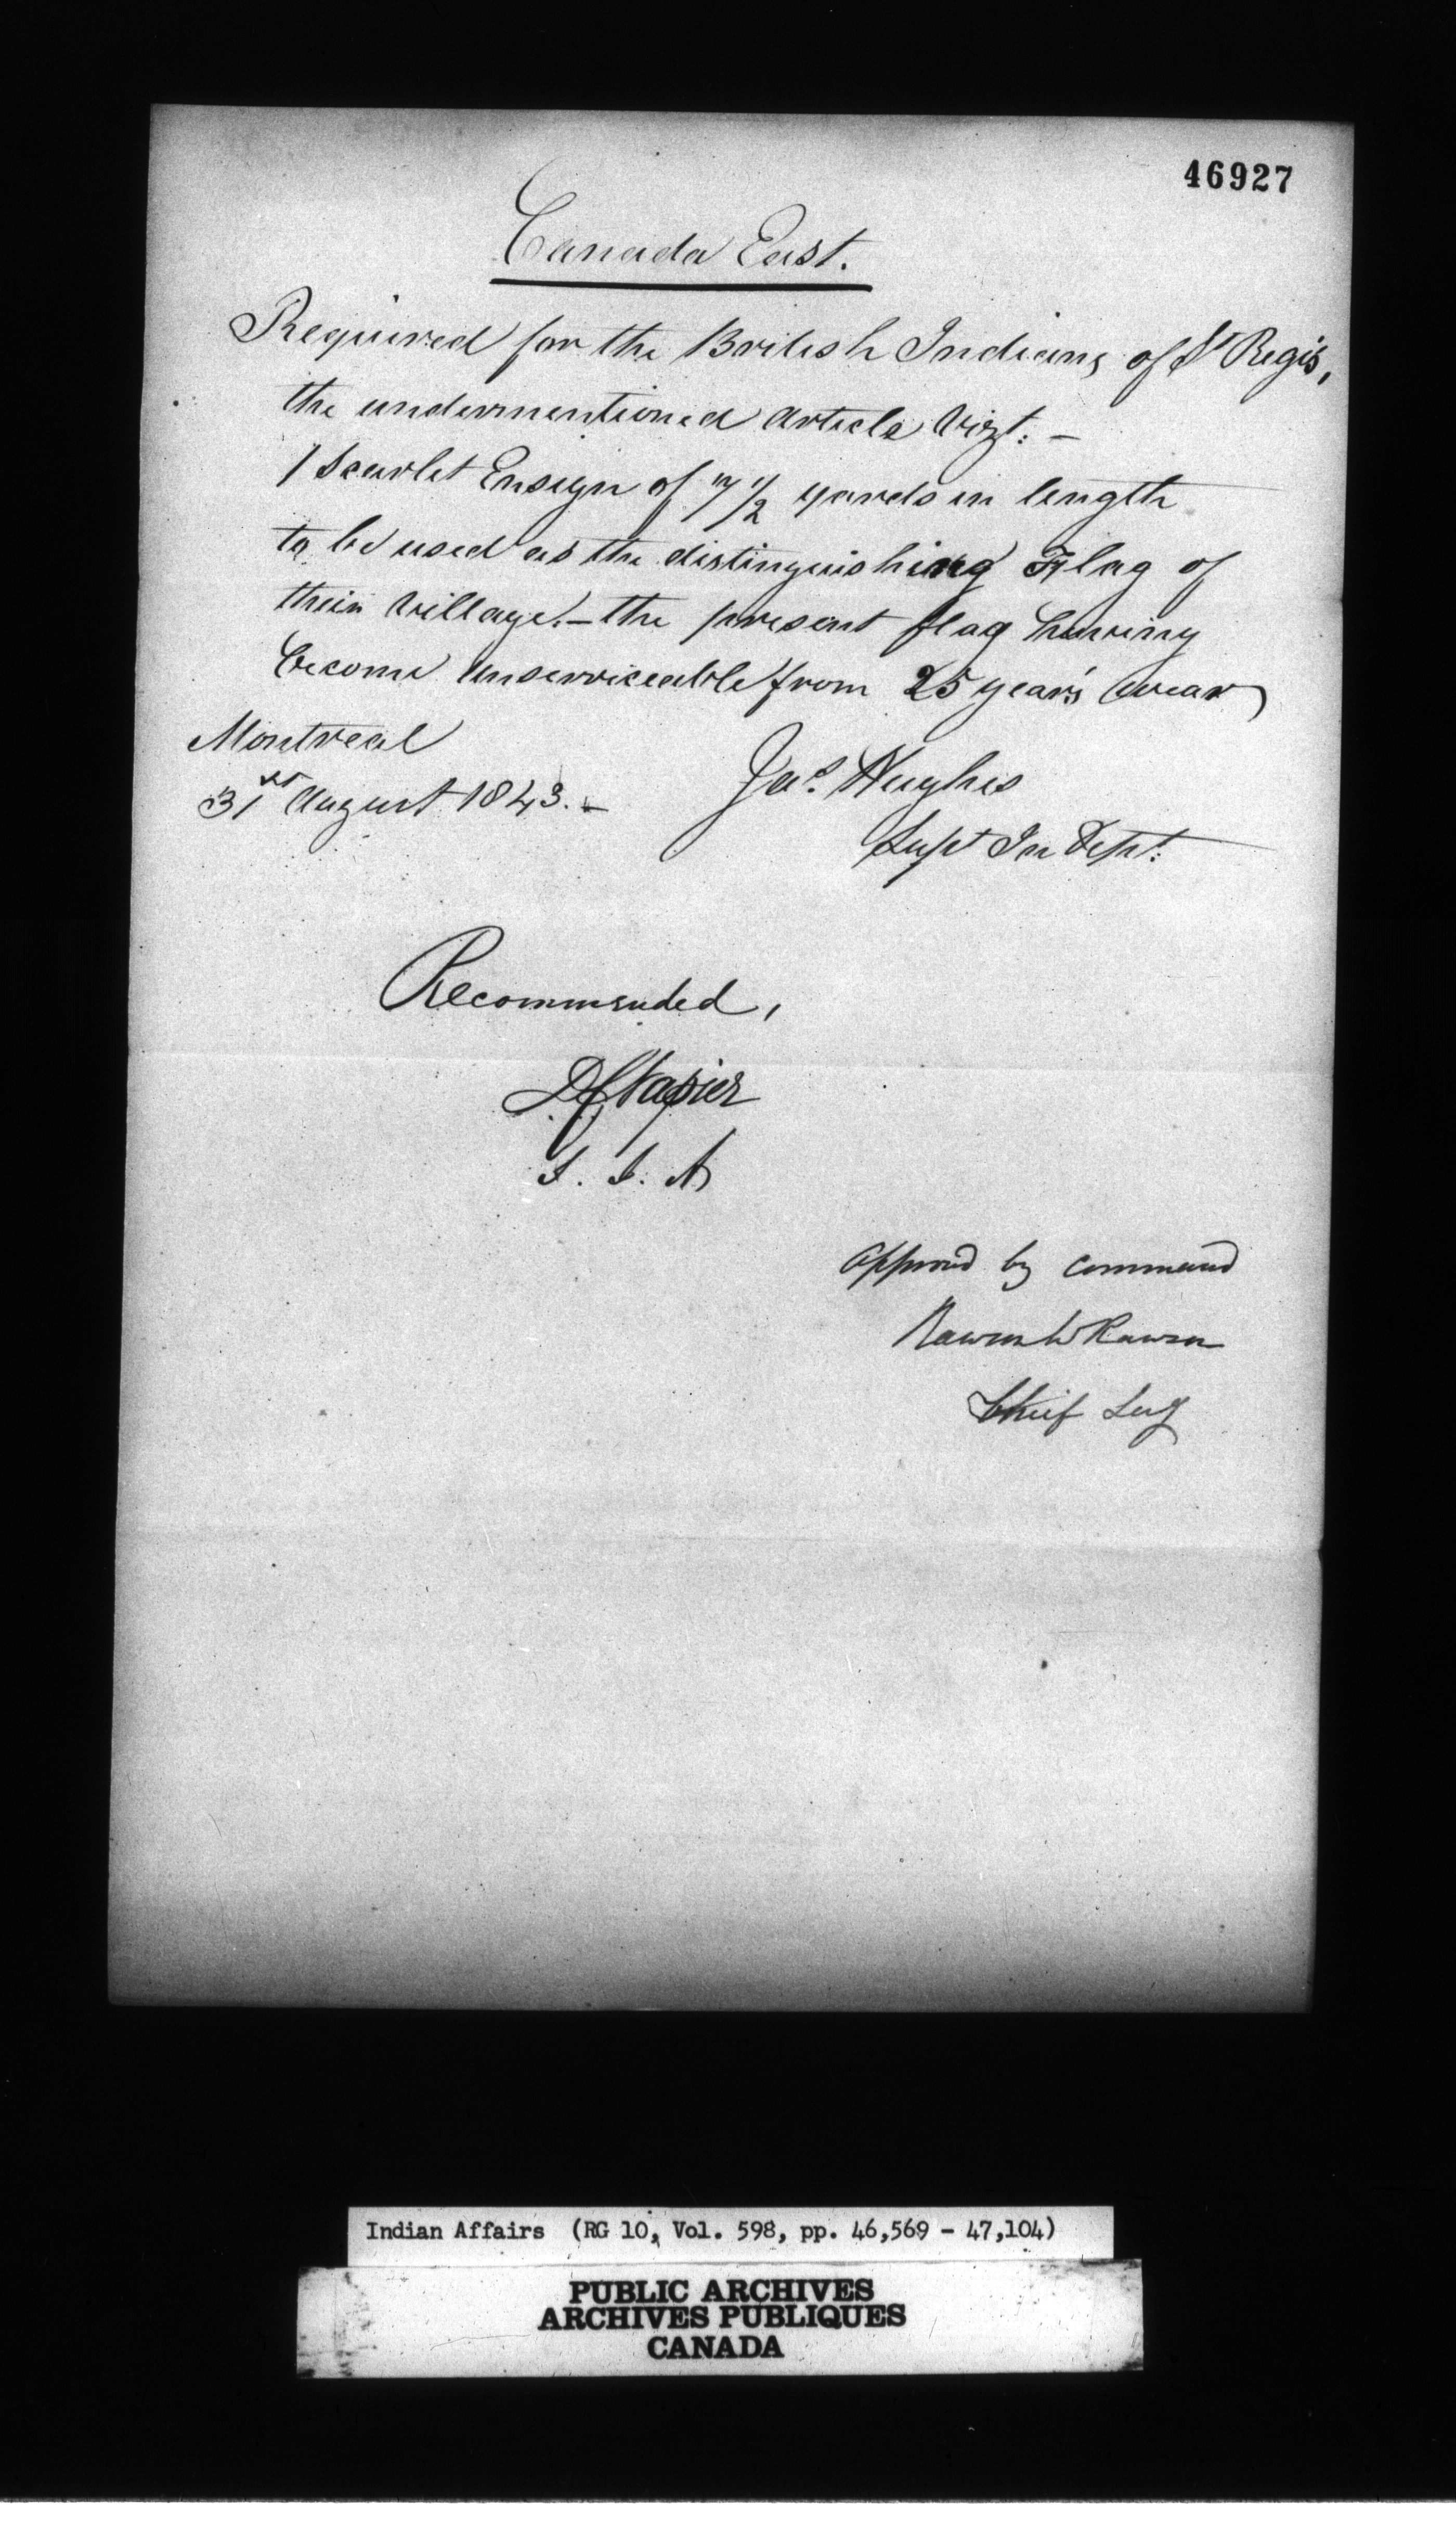 46927
Canada East.
Required for the British Indians of St Regis,
the undermentioned article Vizt: —
1 Scarlet Ensign of 7 1/2 yards in length
to be used as the distinguishing Flag of
their Village. — the present flag having
become unserviceable from 25 years wear
Montreal
31st August 1843. —
Jas. Hughes
Supt In Dept:
Recommended,
DC Napier
S. I. A
Approved by Command
Rawson W Rawson
Chief Secy
Indian Affairs (RG 10, Vol. 598, pp. 46,569 - 47,104)
PUBLIC ARCHIVES
ARCHIVES PUBLIQUES
CANADA